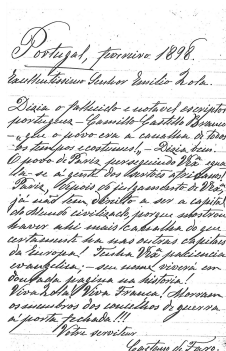 Portugal, fevereiro 1898.
Excellentissimo Senhor Emilio Zola.
Dizia o fallecido e notavel escriptor
portuguez – Camillo Castello Branco
– "que o povo era a canalha de todos
os tempos e costumes", – Dizia bem.
O povo de Paris perseguindo V.Exª igua
la-se á gente dos sertões africanos!
Paris, depois do julgamento de V.Exª,
já não tem direito a ser a capital
do Mundo civilizado, porque mostrou
haver ahi mais canalha do que
certamente ha nas outras capitaes
da Europa! Tenha V.Exª paciencia
evangelica; – seu nome viverá em
dourada pagina na historia!
Viva Zola! Viva França! Morram
os membros dos conselhos de guerra
á porta fechada!!!
Votre serviteur
Caetano de Faro.